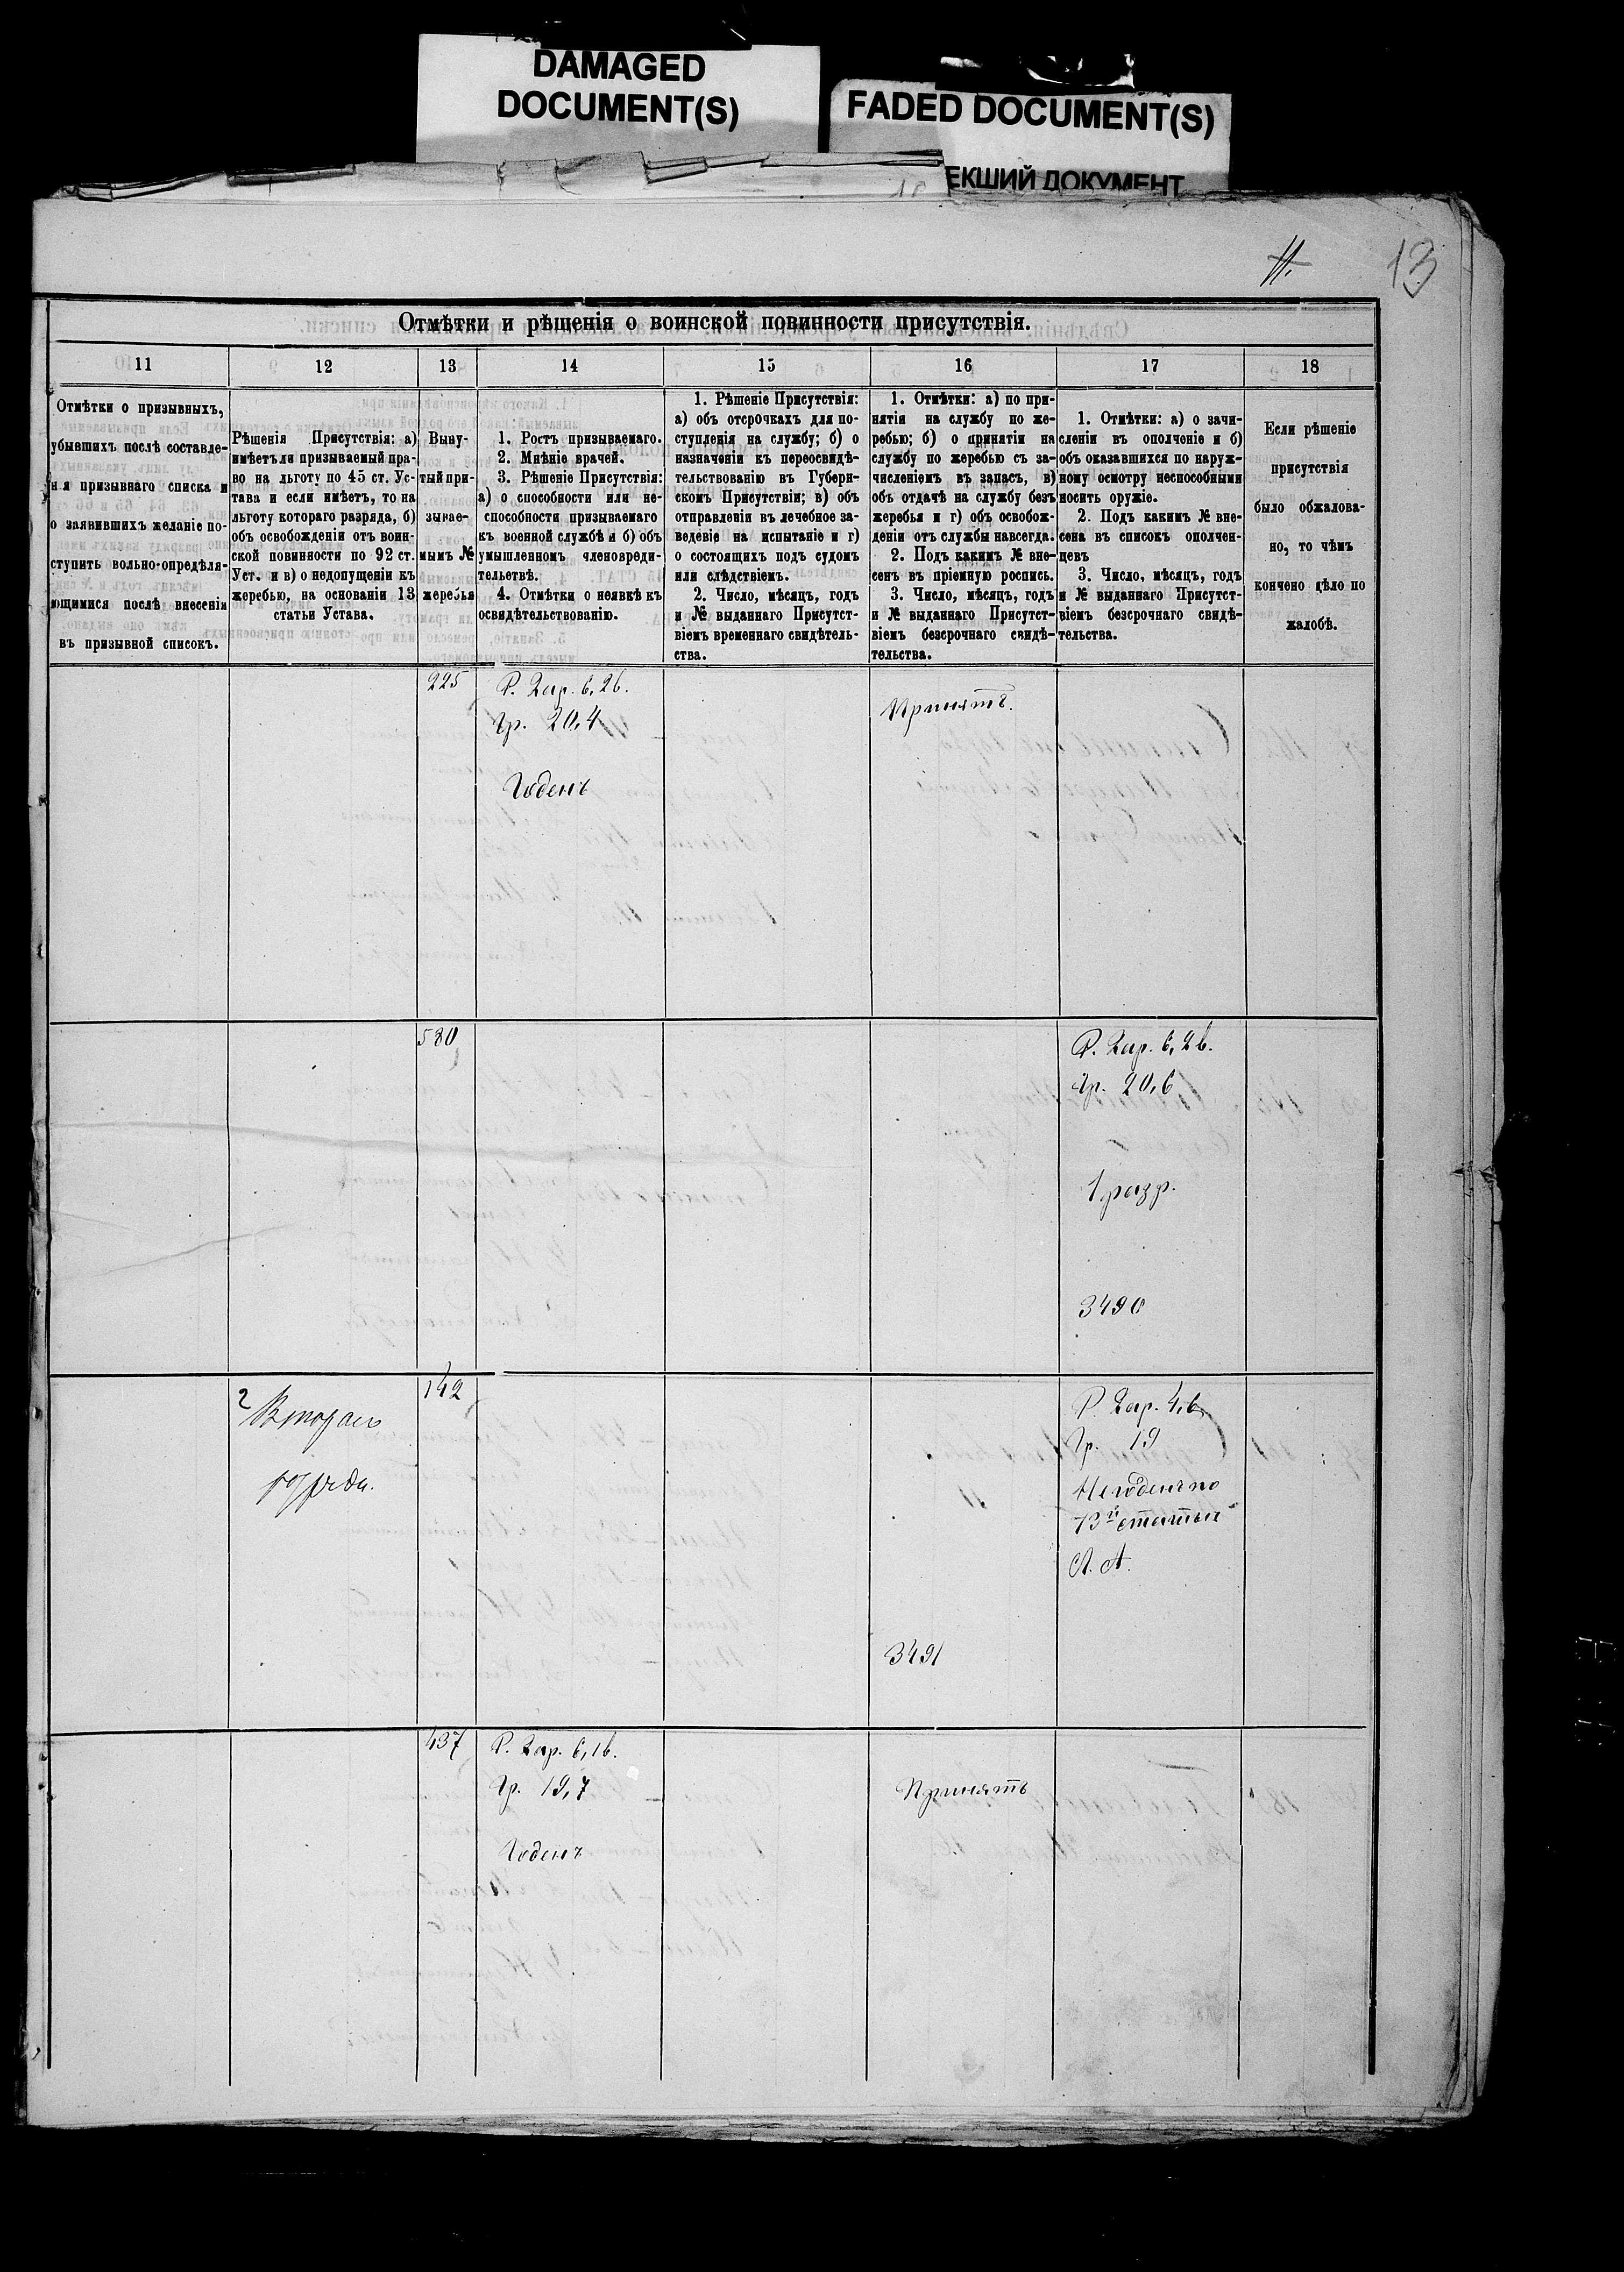 DAMAGED
DOCUMENT(S)
FADED DOCUMENT(S)
ЕКШИЙ ДОКУМЕНТ
11.
13
Отмѣтки и рѣшенія о воинской повинности присутствія.
11
12
13
14
15
16
17
18
Отмѣтки о призывныхъ,
убывшихъ послѣ составле-
нія призывнаго списка и
о заявившихъ желаніе по-
ступить вольно-опредѣля-
ющимися послѣ внесенія
въ призывной список.
Рѣшенія Присутствія: а)
имѣетъ ли призываемый пра-
во на льготу по 45 ст. Ус-
тава и если имѣетъ, то на
льготу котораго разряда, б)
объ освобожденіи отъ воин-
ской повинности по 92 ст.
Уст. и в) о недопущеніи къ
жеребью, на основаніи 13
статьи Устава.
Выну-
тый при-
зывае-
мымъ №
жеребья
1. Ростъ призываемаго.
2. Мнѣніе врачей.
3. Рѣшеніе Присутствія:
а) о способности или не-
способности призываемаго
къ военной службѣ и б) объ
умышленномъ членовреди-
тельствѣ.
4. Отмѣтки о неявкѣ къ
освидѣтельствованію.
1. Рѣшеніе Присутствія:
а) объ отсрочкахъ для по-
ступленія на службу; б) о
назначеніи къ переосвидѣ-
тельствованію въ Губерн-
скомъ Присутствіи; в) объ
отправленіи въ лечебное за-
веденіе на испытаніе и г)
о состоящихъ подъ судомъ
или слѣдствіемъ.
2. Число, мѣсяцъ, годъ
и № выданнаго Присутст-
віемъ временнаго свидѣтель-
ства.
1. Отмѣтки: а) по при-
нятіи на службу по же-
ребью; б) о принятіи на
службу по жеребью съ за-
численіемъ въ запасъ, в)
объ отдачѣ на службу безъ
жеребья и г) объ освобож-
деніи отъ службы навсегда.
2. Подъ какимъ № вне-
сенъ въ пріемную роспись.
3. Число, мѣсяцъ, годъ
и № выданнаго Присутст-
віемъ безсрочнаго свидѣ-
тельства.
1. Отмѣтки: а) о зачи-
сленіи въ ополченіе и б)
объ оказавшихся по наруж-
ному осмотру неспособными
носить оружіе.
2. Подъ какимъ № вне-
сена въ списокъ ополчен-
цевъ
3. Число, мѣсяцъ, годъ
и № выданнаго Присутст-
віемъ безсрочнаго свидѣ-
тельства.
Если рѣшеніе
присутствія
было обжалова-
но, то чѣмъ
кончено дѣло по
жалобѣ.
225
Р. 2ар. 6,2в.
Гр. 20,4
Годенъ
Принятъ.
580
Р. 2ар. 6,2в.
Гр. 20,6
1 разр.
3490
2 Втораго
разряда.
142
Р. 2ар. 4,в
Гр. 19
Негоденъ по
73й статьи
Л. А.
3491
437
Р. 2ар. 6,1в.
Гр. 19,7
Годенъ
Принятъ